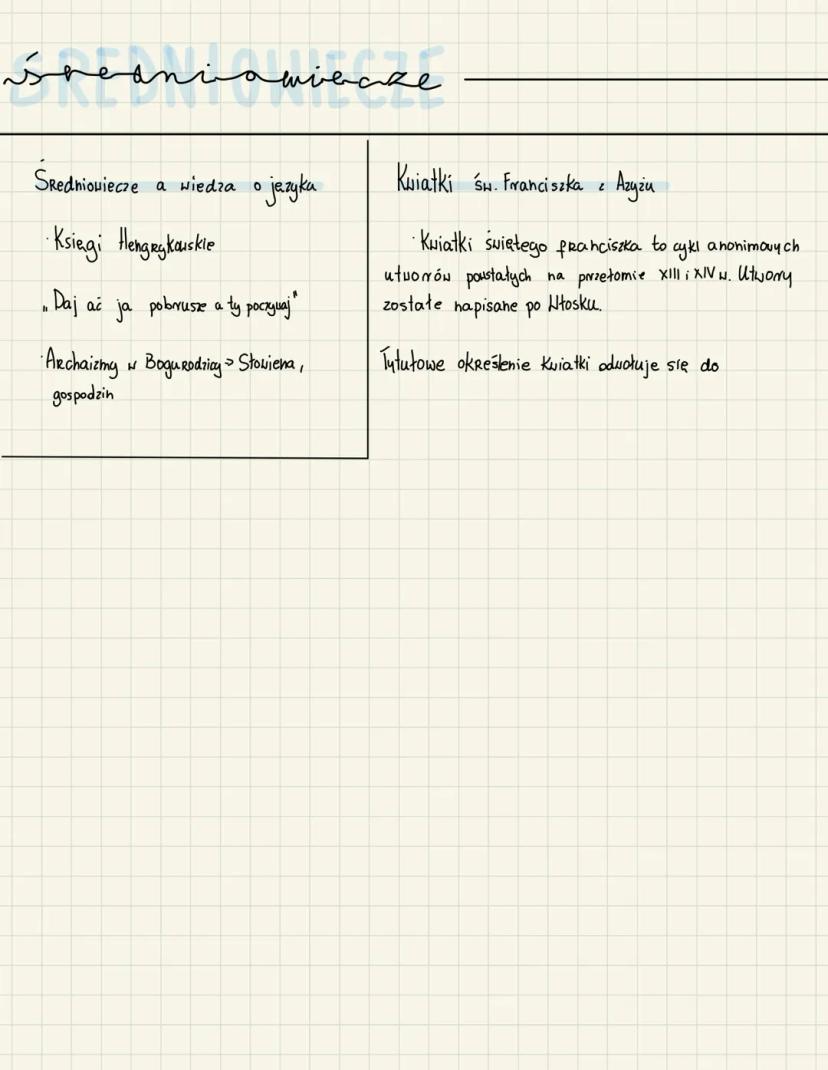 ŚREDNIOWIECZE
średniowiecze
Średniowiecze a wiedza o języku
· Księgi Hengrykowskie
„Daj ać ja pobrusze a ty poczywaj"
· Archaizmy w Bogurodzicy → Słowiena,
gospodzin
Kwiatki św. Franciszka z Azyżu
· Kwiatki świętego franciszka to cykl anonimowych
utworów powstałych na przełomie XIII i XIV w. Utwory
zostałe napisane po Włosku.
Tytułowe określenie Kwiatki odwołuje się do